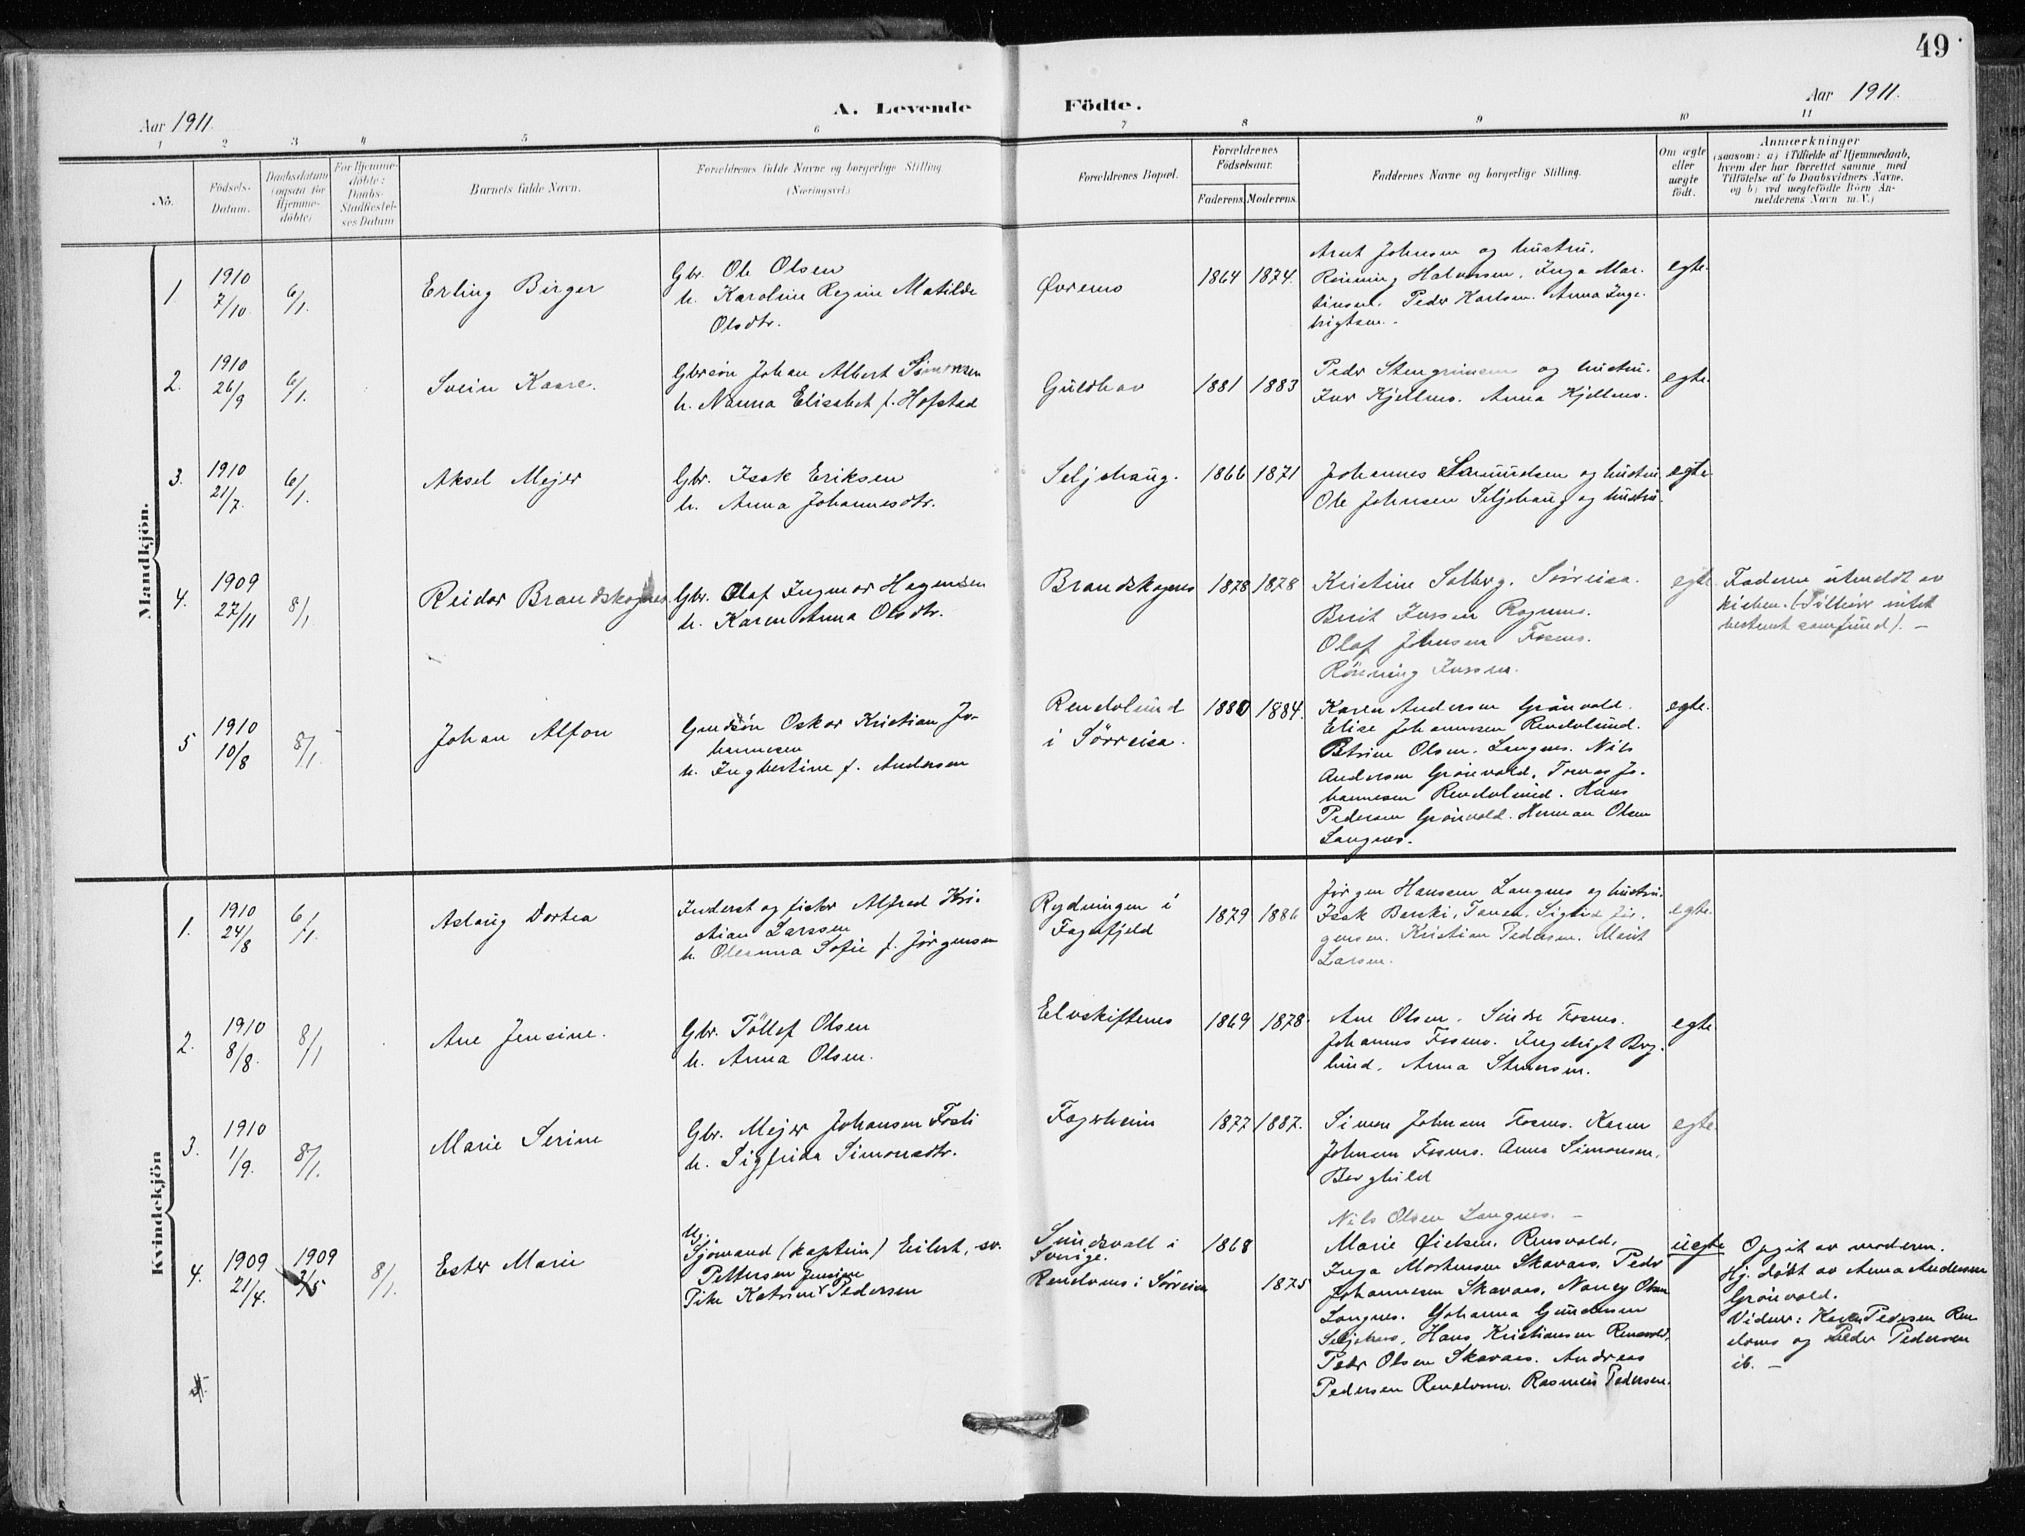 49
A. Levende Födte.
Aar 1911.
Aar 1911.
1 2 3 4 5 6 7 8 9 10 11
No.
Födsels-
Datum.
Daabsdatum
(ogsaa for
Hjemme-
döbte)
For Hjemme-
döbte:
Daabs-
Stadfæstel-
ses Datum
Barnets fulde Navn.
Forældrenes fulde Navne og borgerlige Stilling
(Næringsvei.)
Forældrenes Bopæl.
Forældrenes
Födselsaar.
Faderens. Moderens.
Faddernes Navne og borgerlige Stilling.
Om ægte
eller
uægte
födt.
Anmærkninger
(saasom: a) i Tilfælde af Hjemmedaab,
hvem der har forrettet samme med
Tilföielse af to Daabsvidners Navne.
og b) ved uægtefödte Börn An-
melderens Navn m.V.)
Mandkjön.
1
1910
7/10
6/1.
Erling Birger
Gbr. Ole Olsen
h. Karoline Regine Matilde
Olsdtr.
Øvremo
1864 1874.
Arnt Johnsen og hustru.
Rönning Halvorsen. Inga Mar-
tinsen. Peder Karlsen. Anna Inge-
brigtsen.
egte.
2.
1910
26/9
6/1.
Svein Kaare.
Gbrsön Johan Albert Simonsen
h. Nanna Elisabet f. Hofstad
Guldhav
1881 1883
Peder Stengrimsen og hustru.
Iver Kjellmo. Anna Kjellmo.
egte.
3.
1910
21/7
6/1.
Aksel Mejer
Gbr. Isak Eriksen
h. Anna Johannesdtr.
Seljehaug.
1866 1871
Johannes Samuelsen og hustru
Ole Johnsen Seljehaug og hustru.
egte
4.
1909
27/11
8/1
Reidar Brandskognes
Gbr. Olaf Ingmar Hagensen
h. Karen Anna Olsdtr.
Brandskognes
1878 1878
Kristine Solberg. Sørreisa.
Berit Iversen Rognmo.
Olaf Johnsen Fosmo.
Rönning Iversen.
egte
Faderen utmeldt av
kirken. (Tilhörer intet
bestemt samfund). –
5
1910
10/8
8/1
Johan Alfon
Grndsön Oskar Kristian Jo-
hannesen
h. Ingbertine f. Andersen
Rendvlund
i Sörreisa.
1880 1884.
Karen Andersen Grönvold.
Elise Johannesen Rendvlund.
Petrine Olsen. Langnes. Nils
Andersen Grönvold. Tomas Jo-
hannesen Rendvlund. Hans
Pedersen Grönvold. Herman Olsen
Langnes.
egte.
Kvindekjön
1.
1910
24/8
6/1.
Aslaug Dortea
Inderst og fisker Alfred Kri-
stian Larssen
h. Oleanna Sofie f. Jørgensen
Rydningen i
Fagerfjeld
1879 1886
Jörgen Hansen Langnes og hustru.
Isak Bærski, Tanen. Sigurd Jör-
gensen. Kristian Pedersen. Marit
Larsen.
egte.
2.
1910
8/8.
8/1
Ane Jensine.
Gbr. Töllef Olsen
h. Anna Olsen.
Elvskiftenes
1869 1878.
Ane Olsen. Sindre Fosmo.
Johannes Fosmo. Ingebrigt Berg-
lund. Anna Stenersen.
egte
3.
1910
1/9.
8/1.
Marie Serine
Gbr. Mejer Johansen Fosli
h. Sigfrida Simonsdtr.
Fagerheim
1877 1887.
Simon Johnsen Fosmo. Karen
Johnsen Fosmo. Anna Simonsen,
Berghild
Nils Olsen Langnes. –
egte
4.
1909
21/4.
1909
2/5
8/1.
Ester Marie
Ug.
Sjömand (kaptein) Eilert, sv.
Pettersen
Pike Katrine Jensine Pedersen
Sundsvall i
Sverige.
Rendvmo i Sörreisa
1868
1875
Marie Øielsen, Rensvold,
Inga Mortensen Skavaas, Peder
Johannesen Skavaas, Nancy Olsen
Langnes. Johanna Gundersen
Seljehaug, Hans Kristiansen Rensvold,
Peder Olsen Skavaas. Andreas
Pedersen Rendvmo. Rasmus Pedersen.
uegte
Opgit av moderen.
Hj. döbt av Anna Andersen
Grönvold.
Vidner: Karen Pedersen Ren-
dvmo og Peder Pedersen
ib. –